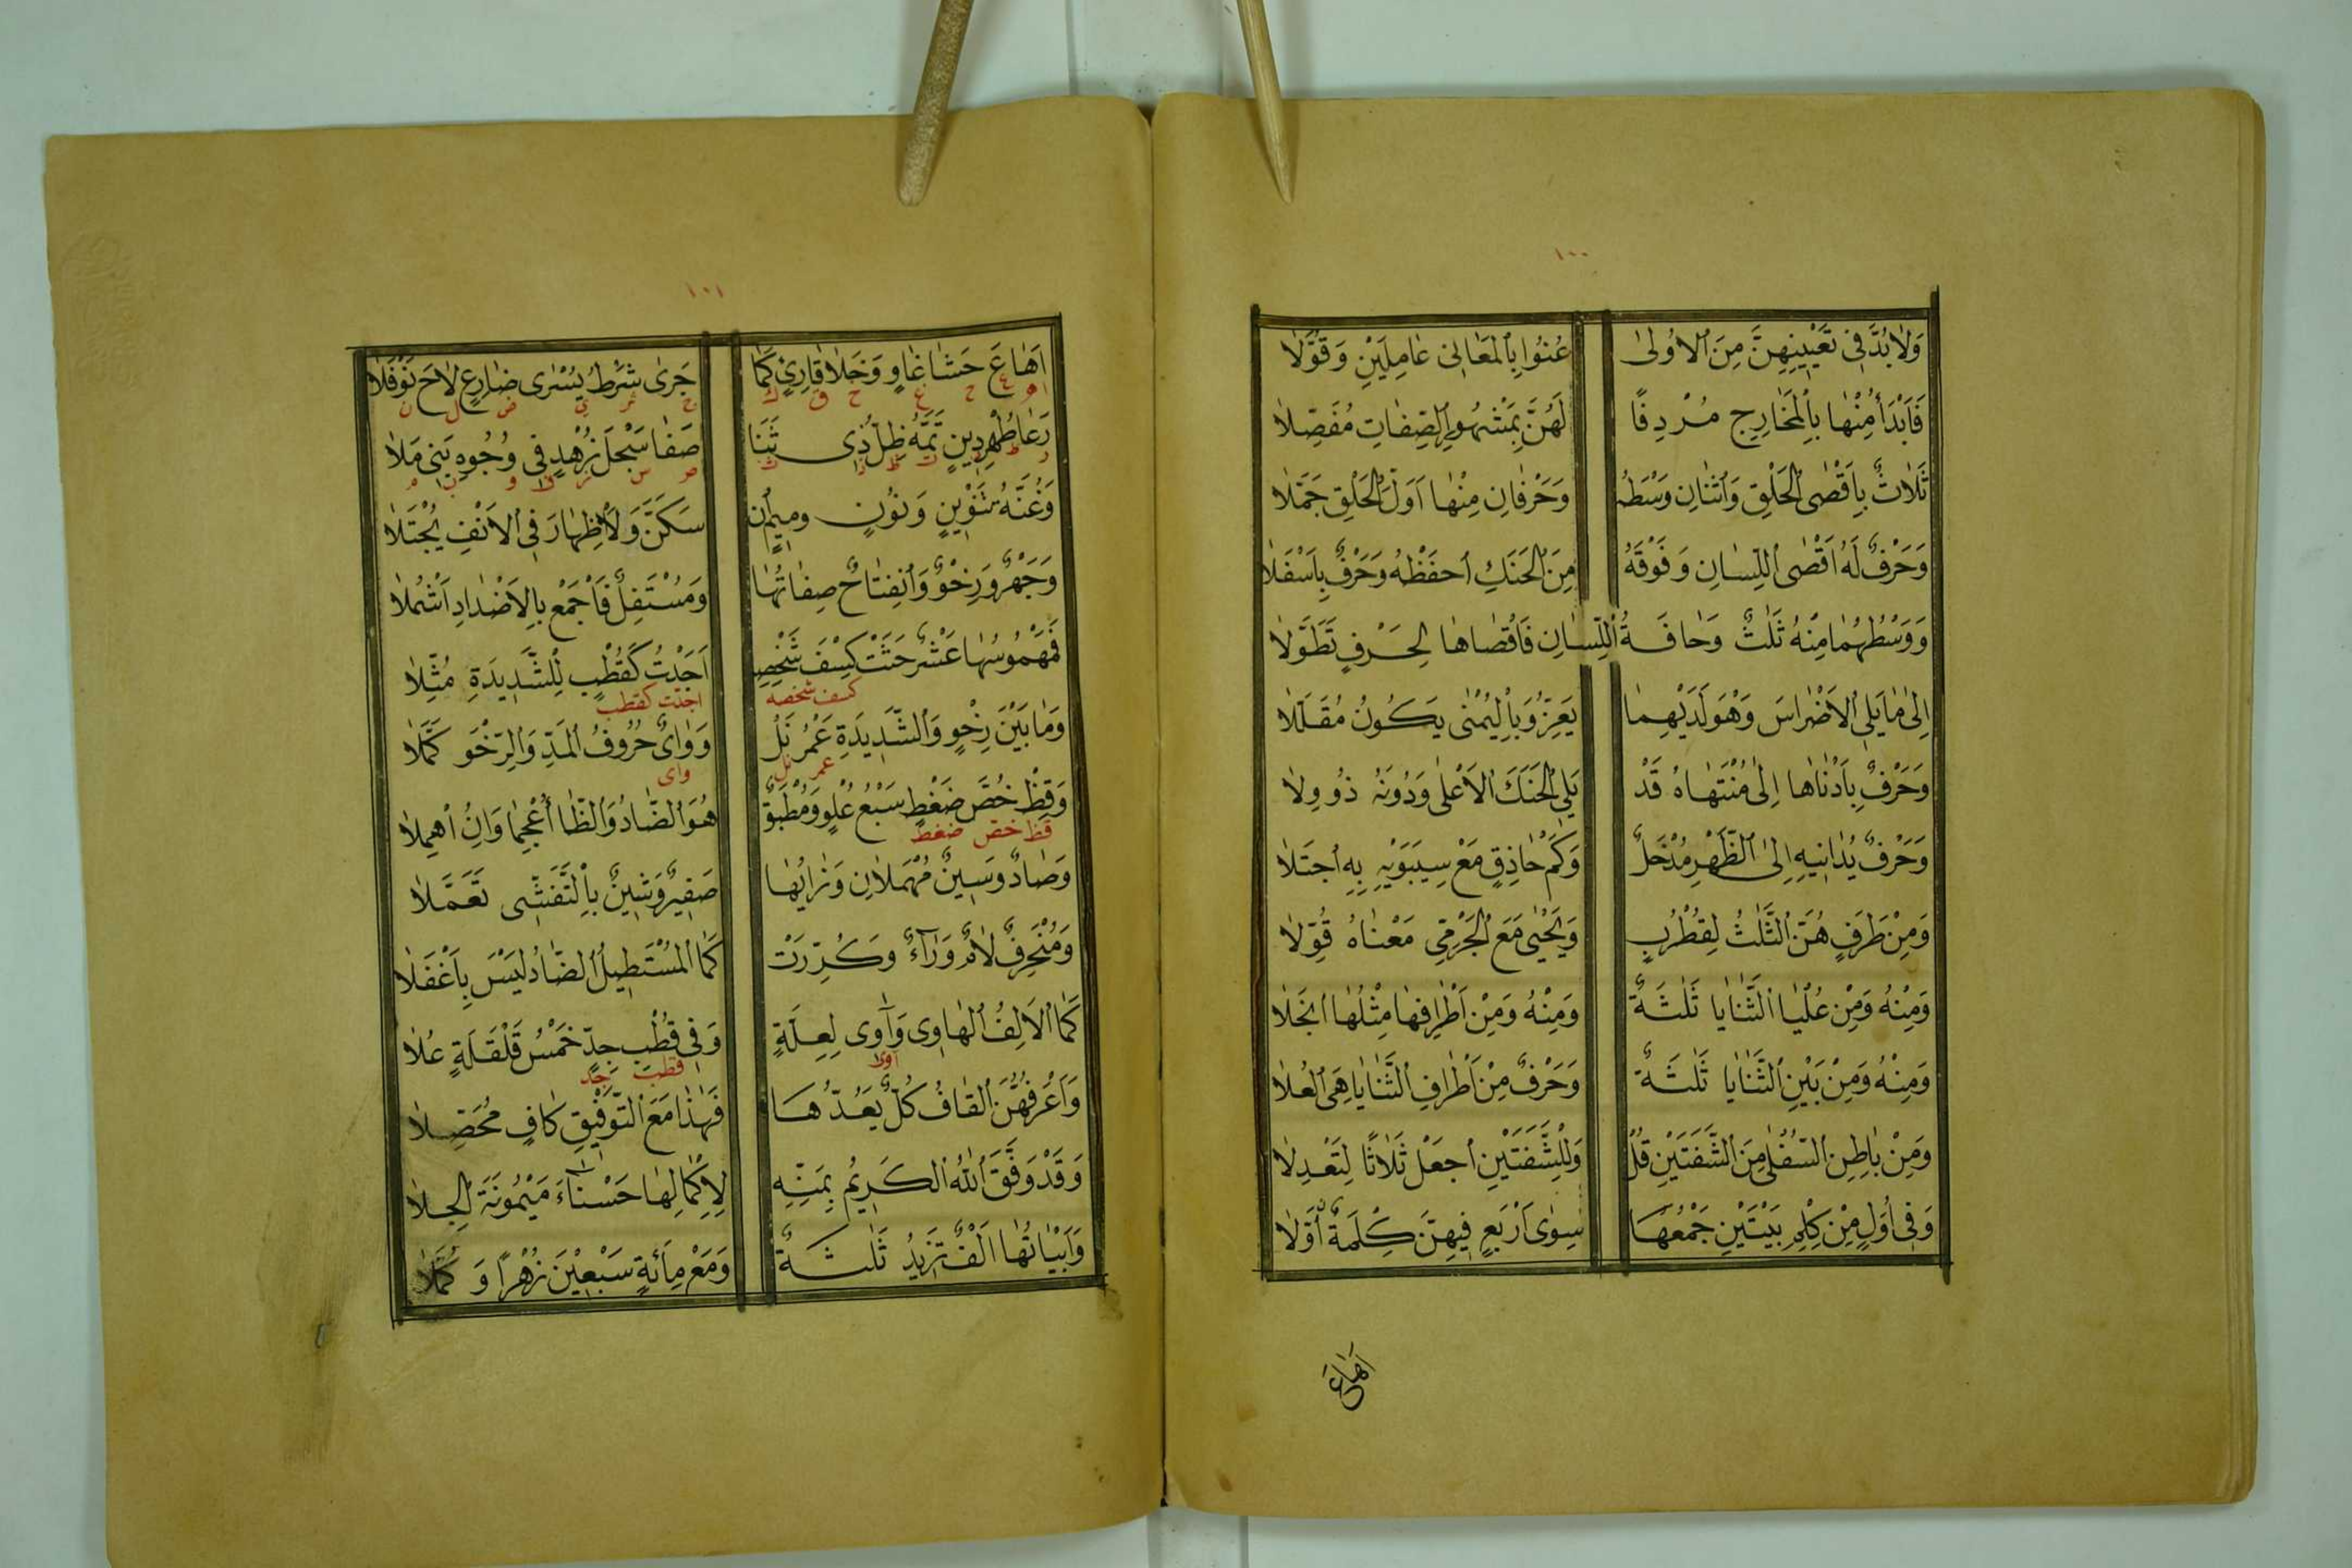 ١٠٠
وَلَابُدَّ فِي تَعْيِينِهِنَّ مِنَ الْاُولٰى عُنُوا بِالْمَعَانِى عَامِلِيْنَ وَقُوَّلَا
فَابْدَأْ مِنْهَا بِالْمَخَارِجِ مُرْدِفًا لَهُنَّ بِمَشْهُورِ الصِّفَاتِ مُفَصِّلَا
ثَلَاثٌ بِاَقْصَى الْحَلْقِ وَاثْنَانِ وَسْطَهُ وَحَرْفَانِ مِنْهَا اَوَّلَ الْحَلْقِ جَمَّلَا
وَحَرْفٌ لَهُ اَقْصَى اللِّسَانِ وَفَوْقَهُ مِنَ الْحَنَكِ احْفَظْهُ وَحَرْفٌ بِاَسْفَلَا
وَوَسْطُهُمَا مِنْهُ ثَلٰثٌ وَحَافَةُ اللِّسَانِ فَاقْصَاهَا لِحَرْفٍ تَطَوَّلَا
اِلٰى مَا يَلِى الْاَضْرَاسَ وَهْوَ لَدَيْهِمَا يَعِزُّ وَبِالْيُمْنٰى يَكُونُ مُقَلَّلَا
وَحَرْفٌ بِاَدْنَاهَا اِلٰى مُنْتَهَاهُ قَدْ يَلِى الْحَنَكَ الْاَعْلٰى وَدُونَهُ ذُو وِلَا
وَحَرْفٌ يُدَانِيهِ اِلَى الظَّهْرِ مُدْخَلٌ وَكَمْ حَاذِقٍ مَعْ سِيبَوَيْهِ بِهِ اجْتَلَا
وَمِنْ طَرَفٍ هُنَّ الثَّلٰثُ لِقُطْرُبٍ وَيَحْيٰى مَعَ الْجَرْمِيِّ مَعْنَاهُ قُوِّلَا
وَمِنْهُ وَمِنْ عُلْيَا الثَّنَايَا ثَلٰثَةٌ وَمِنْهُ وَمِنْ اَطْرَافِهَا مِثْلُهَا انْجَلَا
وَمِنْهُ وَمِنْ بَيْنِ الثَّنَايَا ثَلٰثَةٌ وَحَرْفٌ مِنْ اَطْرَافِ الثَّنَايَا هِىَ الْعُلَا
وَمِنْ بَاطِنِ السُّفْلٰى مِنَ الشَّفَتَيْنِ قُلْ وَلِلشَّفَتَيْنِ اجْعَلْ ثَلَاثًا لِتَعْدِلَا
وَفِى اُوَلٍ مِنْ كِلْمِ بَيْتَيْنِ جَمْعُهَا سِوٰى اَرْبَعٍ فِيهِنَّ كِلْمَةٌ اُوَّلَا
اَهَاعَ
١٠١
اَهَاعَ حَشَا غَاوٍ وَخَلَا قَارِئٍ كَمَا جَرٰى شَرْطُ يُسْرٰى ضَارِعٍ لَاحَ نَوْفَلَا
ا ه ع ح غ خ ق ك ج ش ي ض ل ن
رَعَا طُهْرَ دِينٍ تَمَّهُ ظِلُّ ذِى ثَنَا صَفَا سَجْلَ زُهْدٍ فِى وُجُوهِ بَنِى مَلَا
ر ط د ت ظ ذ ث ص س ز ف و ب م
وَغُنَّةُ تَنْوِينٍ وَنُونٍ وَمِيمٍ انْ سَكَنَّ وَلَا اِظْهَارَ فِى الْاَنْفِ يُجْتَلَا
وَجَهْرٌ وَرِخْوٌ وَانْفِتَاحٌ صِفَاتُهَا وَمُسْتَفِلٌ فَاجْمَعْ بِالْاَضْدَادِ اَشْمُلَا
فَمَهْمُوسُهَا عَشْرٌ حَثَتْ كِسْفَ شَخْصِهِ اَجَدْتُ كَقُطْبٍ لِلشَّدِيدَةِ مُثِّلَا
كسف شخصه اجدت كقطب
وَمَا بَيْنَ رِخْوٍ وَالشَّدِيدَةِ عَمْرُ نَلْ وَوَاىٌ حُرُوفُ الْمَدِّ وَالرِّخْوَ كَمَّلَا
عمر نل واى
وَقِظْ خُصَّ ضَغْطٍ سَبْعُ عُلْوٍ وَمُطْبَقٌ هُوَ الضَّادُ وَالظَّا اُعْجِمَا وَاِنُ اُهْمِلَا
قظ خص ضغط
وَصَادٌ وَسِينٌ مُهْمَلَانِ وَزَايُهَا صَفِيرٌ وَشِينٌ بِالتَّفَشِّى تَعَمَّلَا
وَمُنْحَرِفٌ لَامٌ وَرَآءٌ وَكُرِّرَتْ كَمَا الْمُسْتَطِيلُ الضَّادُ لَيْسَ بِاَغْفَلَا
كَمَا الْاَلِفُ الْهَاوِى وَآوِى لِعِلَّةٍ وَفِى قُطْبِ جِدٍّ خَمْسُ قَلْقَلَةٍ عُلَا
آوى قطب جد
وَاَعْرَفُهُنَّ الْقَافُ كُلٌّ يَعُدُّهَا فَهٰذَا مَعَ التَّوْفِيقِ كَافٍ مُحَصِّلَا
وَقَدْ وَفَّقَ اللّٰهُ الْكَرِيمُ بِمَنِّهِ لِاِكْمَالِهَا حَسْنَاءَ مَيْمُونَةَ الْجِلَا
وَاَبْيَاتُهَا اَلْفٌ تَزِيدُ ثَلٰثَةٌ وَمَعْ مِأَئَةٍ سَبْعِيْنَ زُهْرًا وَ كُمَّلَا